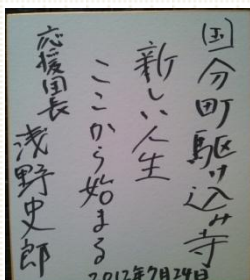 国分町駆け込み寺
新しい人生
ここから始まる
応援団長
浅野史郎
2012年7月24日